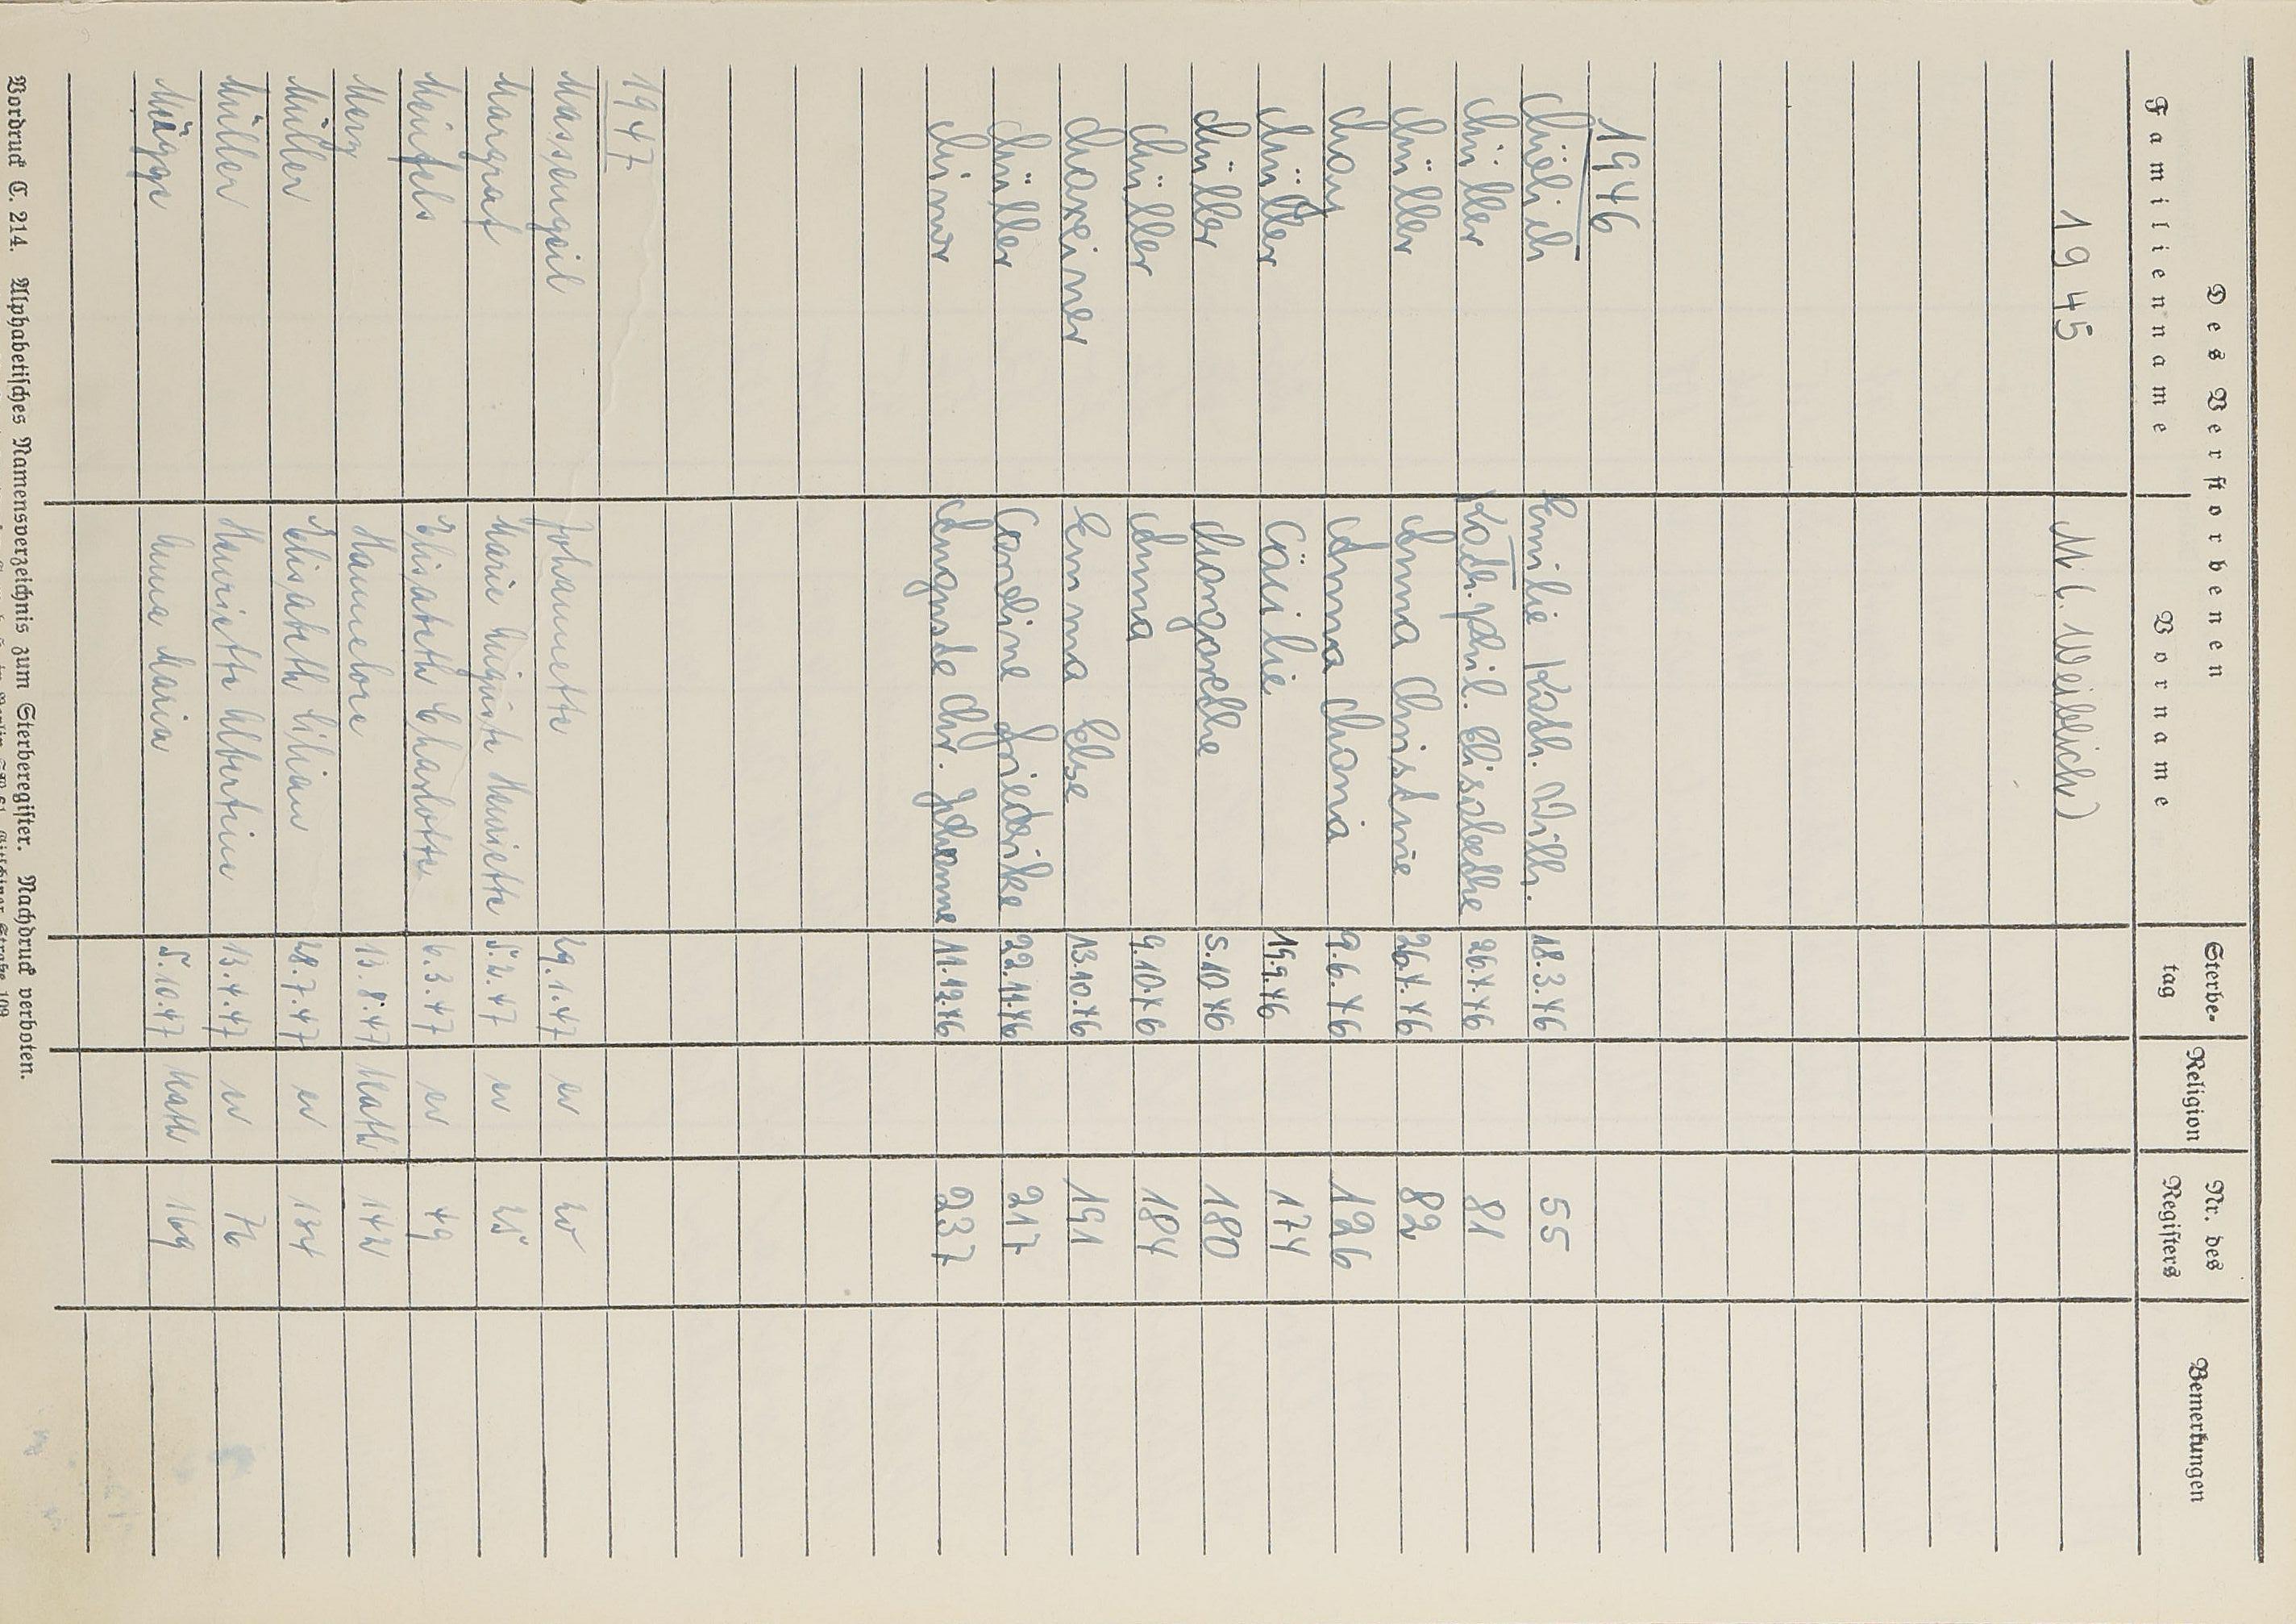 Des Verstorbenen
Sterbe-
tag
Religion
Nr. des
Registers
Bemerkungen
Familienname Vorname
1945 M (Weibliche)
1946
Emilie Kath. Wilh. 18.3.46 55
Müller Kath. Phil. Elisabethe 26.4.46 81
Müller Anna Christine 26.4.46 82
May Anna Maria 9.6.46 126
Müller Cäcilie 19.9.46 174
Müller Margarethe 5.10.46 180
Müller Anna 9.10.46 184
Maxeiner Emma Else 13.10.46 191
Müller Caroline Friederike 22.11.46 217
Auguste Chr. Johanne 11.12.46 237
1947
Massengeil Johannette 29.1.47 ev 20
Margraf Marie Auguste Henriette 5.2.47 ev 25
Elisabeth Charlotte 6.3.47 ev 49
Merz Hannelore 13.8.47 Kath 142
Müller Elisabeth Lilian 28.7.47 ev 134
Müller Henriette Albertine 13.4.47 ev 76
Mügge Anna Maria 5.10.47 Kath 169
Vordruck C. 214. Alphabetisches Namensverzeichnis zum Sterberegister. Nachdruck verboten.